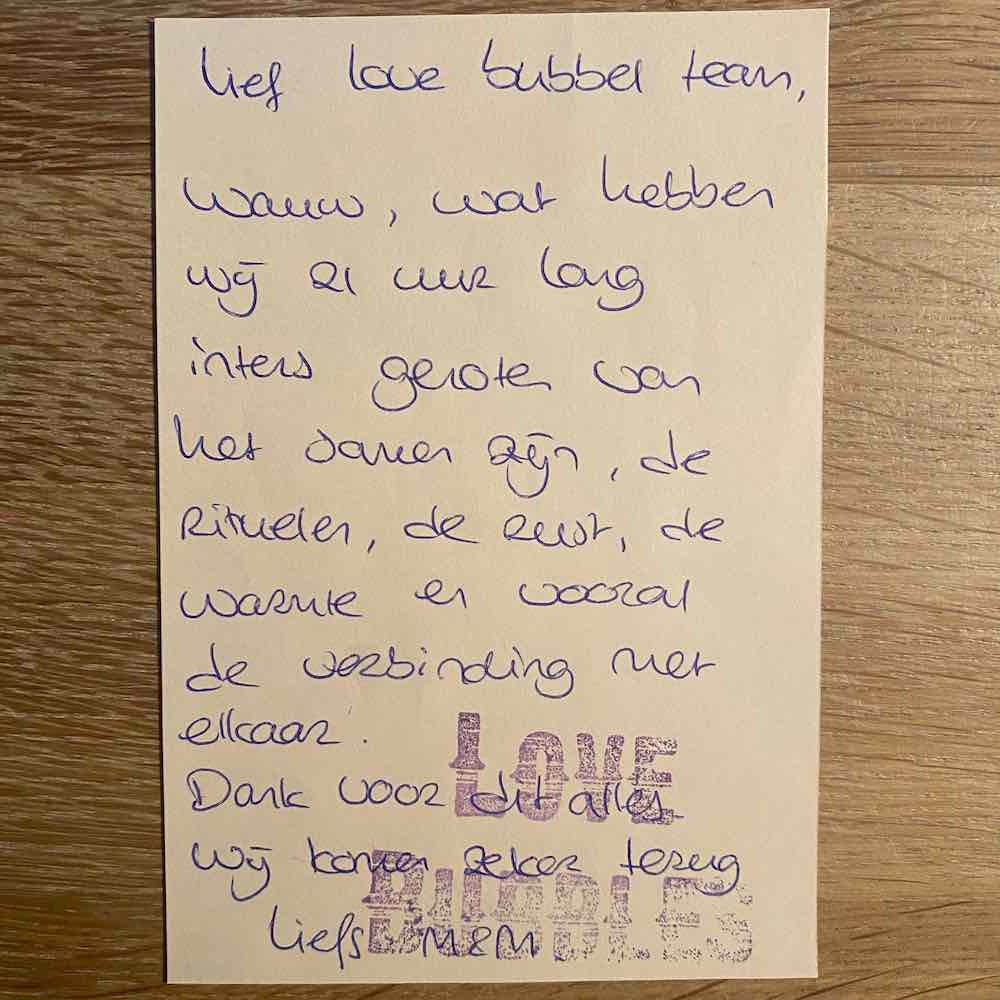 lief love bubbel team,
wauw, wat hebben
wij 21 uur lang
intens genoten van
het samen zijn, de
rituelen, de rust, de
warmte en vooral
de verbinding met
elkaar.
LOVE
Dank voor dit alles
wij komen zeker terug
BUBBLES
Liefs M&M